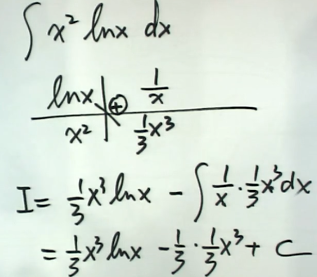 ∫ x² lnx dx
lnx ⊕ 1/x
x² 1/3 x³
I = 1/3 x³ lnx - ∫ 1/x · 1/3 x³ dx
= 1/3 x³ lnx - 1/3 · 1/3 x³ + C